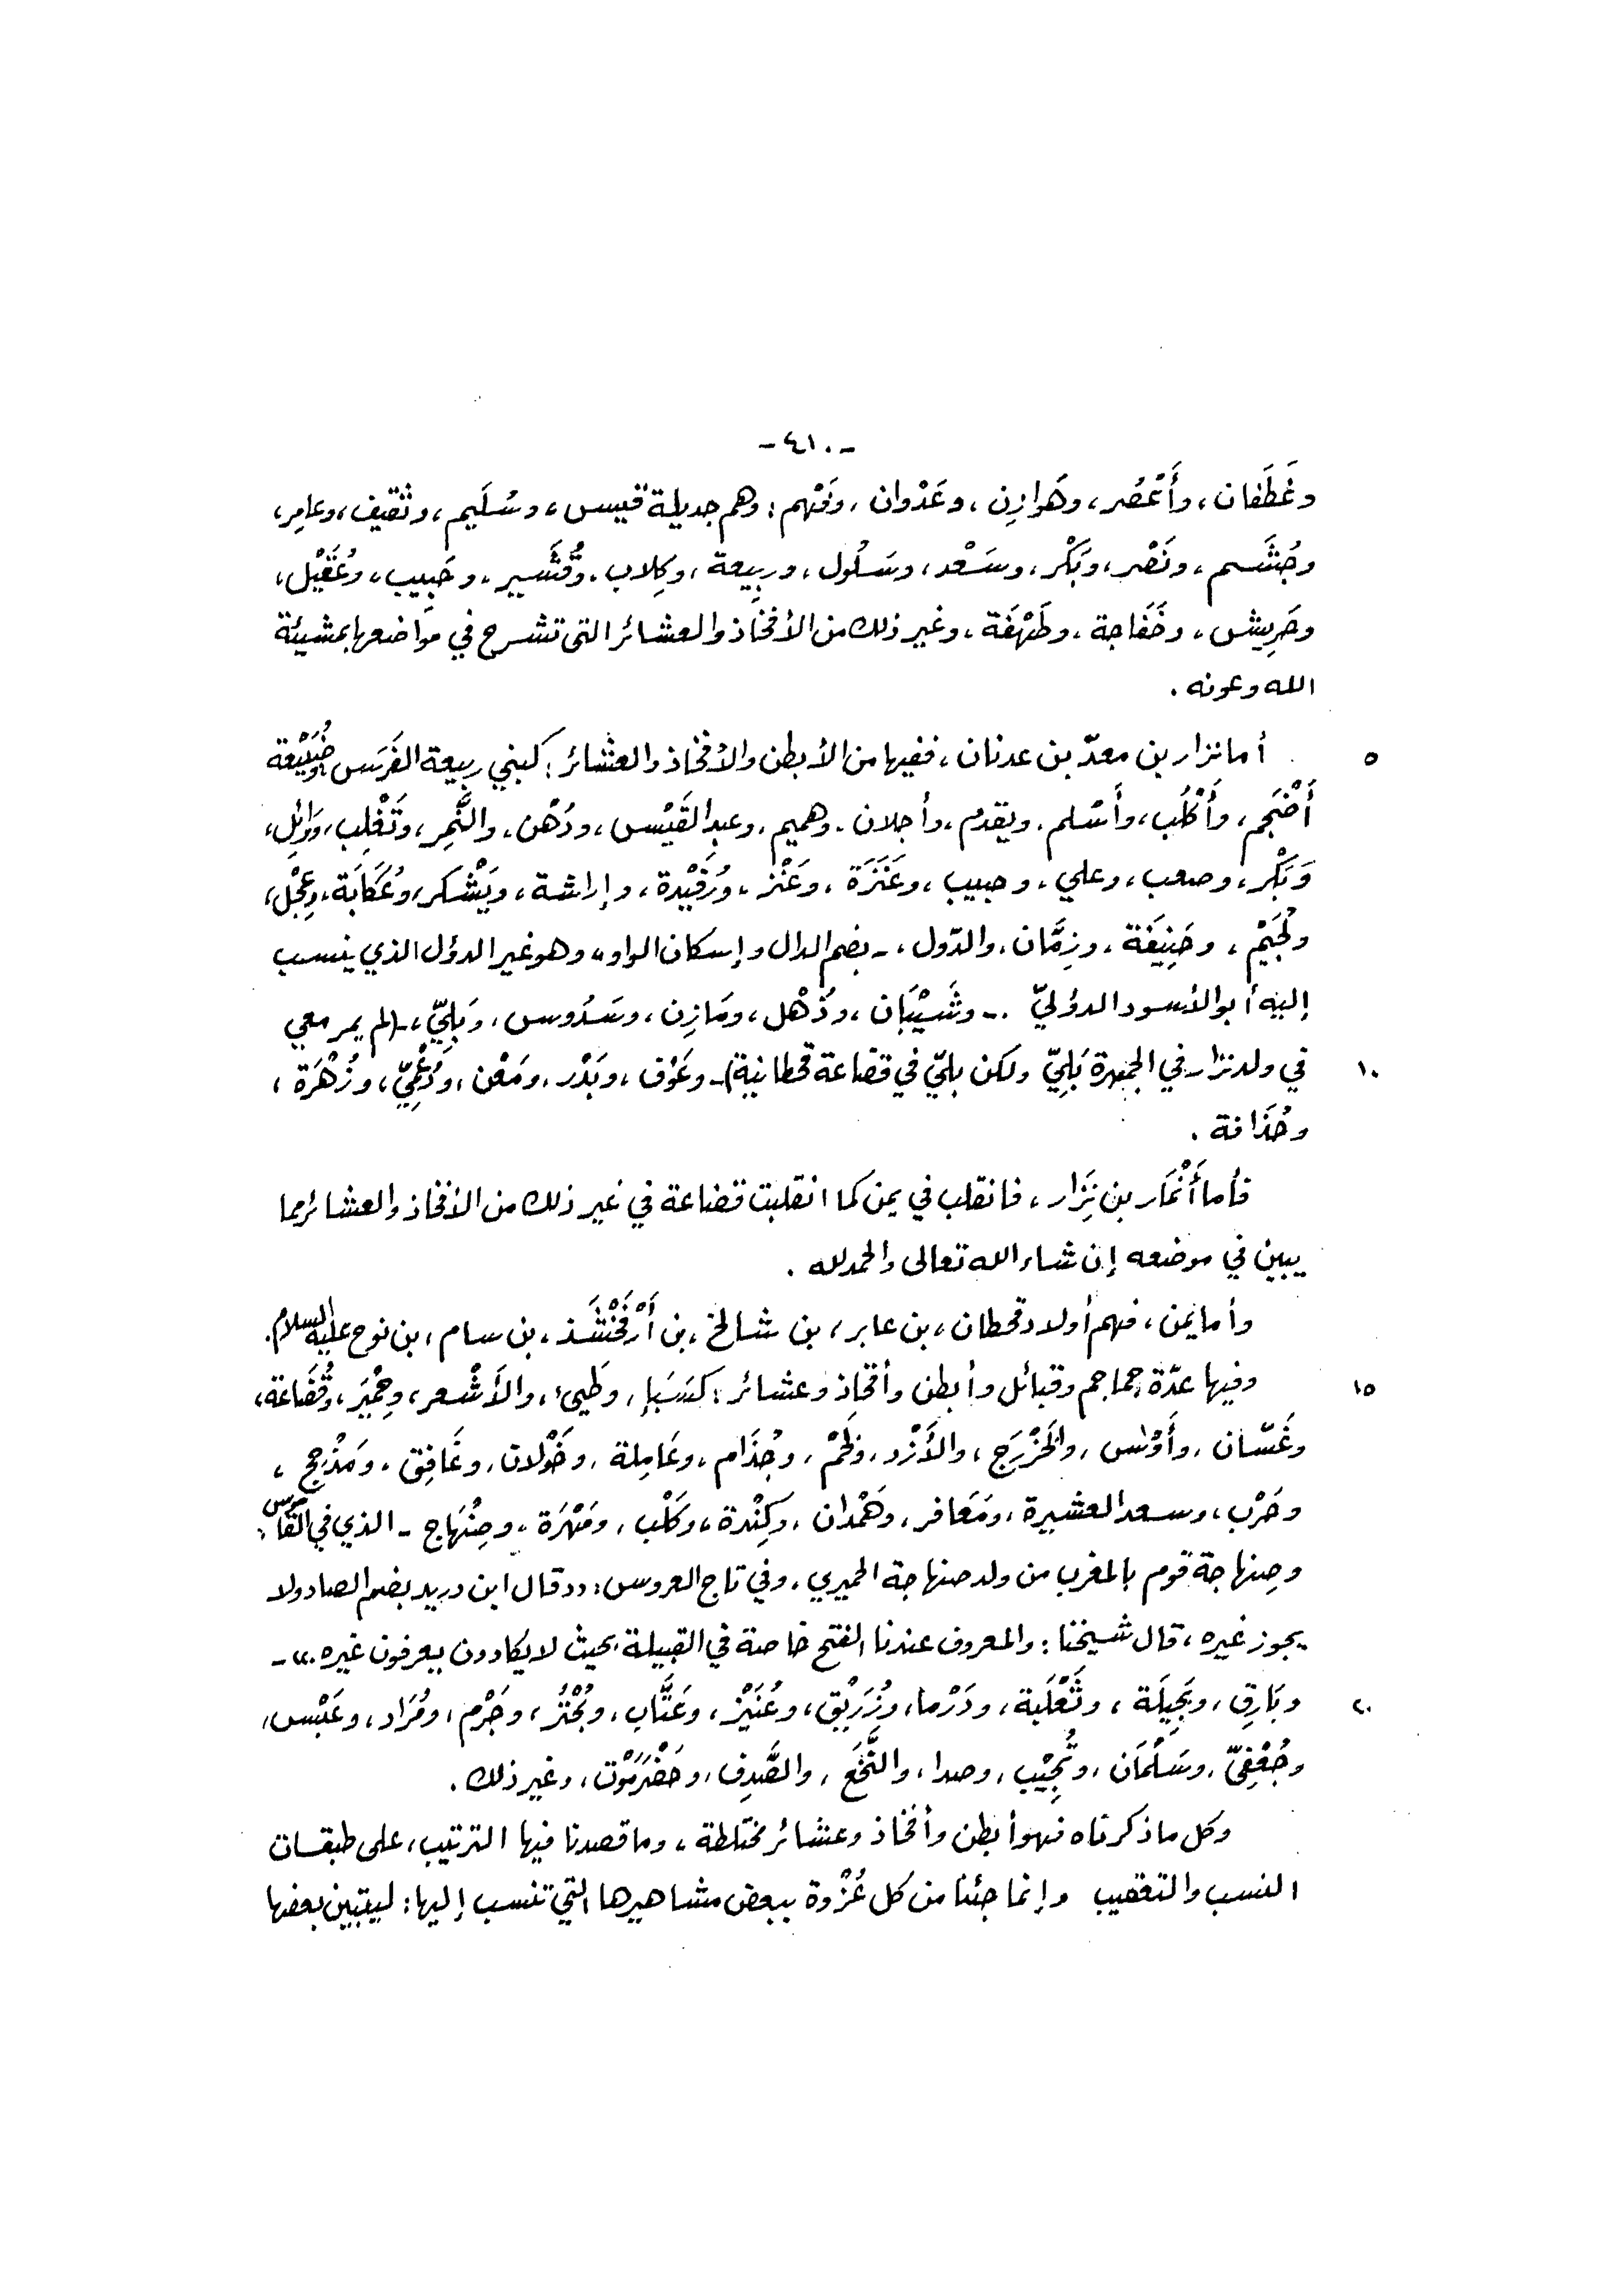 -٤١٠-
وغَطَفان، وأَعْصُر، وهَوازِن، وعَدْوان، وفَهْم: وهم جديلة قيس، وسُلَيم، وثقيف، وعامِر،
وجُشَم، ونَصْر، وبَكْر، وسَعْد، وسَلُول، وربِيعة، وكِلاب، وقُشَير، وحَبِيب، وعُقَيْل،
وحَرِيش، وخَفَاجة، وطَهْفَة، وغير ذلك من الأفخاذ والعشائر التي تشرح في مواضعها بمشيئة
الله وعونه.
٥ أما نزار بن معدّ بن عدنان، ففيها من الأبطن والأفخاذ والعشائر: كبني ربيعة الفَرَس وضُبَيْعة
أَضْجَم، وأَكْلُب، وأَسْلم، ويقدم، وأجلان، وهميم، وعبد القَيْس، ودُهْن، والنَّمِر، وتَغْلِب، ووَائِل،
وَبَكْر، وصعب، وعلي، وحبيب، وعَنَزَة، وعَنْز، ورُفَيْدة، وإراشة، ويَشْكر، وعُكَابَة، وعِجْل،
ولُجَيْم، وحَنِيفَة، وزِمَّان، والدّول، - بضم الدال وإسكان الواو، وهو غير الدؤل الذي ينسب
إليه أبو الأسود الدؤليّ .- وشَيْبَان، وذُهْل، ومَازِن، وسَدُوس، وَبَلِيّ، -(لم يمر معي
١٠ في ولد نزار في الجمهرة بَلِيّ ولكن بليّ في قضاعة قحطانية)- وعَوْف، وبَدْر، ومَعْن، ودُعْمِيّ، وزُهْرَة،
وحُذَافة.
فأما أَنْمَار بن نِزَار، فانقلب في يمن كما انقلبت قضاعة في غير ذلك من الأفخاذ والعشائر مما
يبين في موضعه إن شاء الله تعالى والحمد لله.
وأما يَمن، فهم أولاد قحطان، بن عابر، بن شالخ، بن أَرْفَخْشَذ، بن سام، بن نوح عليه السلام.
١٥ وفيها عدّة جماجم وقبائل وأبطن وأفخاذ وعشائر: كسَبَإ، وطَيىء، والأَشْعر، وحِمْيَر، وقُضَاعة،
وغَسّان، وأَوْس، والخَزْرَج، والأَزْد، ولَخْم، وجُذَام، وعَامِلة، وخَوْلان، وغَافِق، ومَذْحِج،
وحَرْب، وسعد العشيرة، ومَعَافر، وهَمْدان، وكِنْدة، وكَلْب، ومَهْرَة، وصِنْهَاج - الذي في القاموس:
وصِنهاجة قوم بالمغرب من ولد صنهاجة الحميري، وفي تاج العروس: ((قال ابن دريد بضم الصاد ولا
يجوز غيره، قال شيخنا: والمعروف عندنا الفتح خاصة في القبيلة بحيث لا يكادون يعرفون غيره.)) -
٢٠ وبَارِق، وبَجِيلَة، وثَعْلَبة، ودَرْما، وزُرَيْق، وعُنَيْز، وعَتَّاب، وبُحْتُر، وجَرْم، ومُرَاد، وعَبْس،
وجُعْفِيّ، وسَلْمَان، وتُجِيْب، وصدا، والنَّخَع، والصَّدِف، وحَضْرَمَوْت، وغير ذلك.
وكل ما ذكرناه فهو أبطن وأفخاذ وعشائر مختلطة، وما قصدنا فيها الترتيب، على طبقات
النسب والتقعيب وإنما جئنا من كل عُزْوة ببعض مشاهيرها التي تنسب إليها: ليتبين بعضها